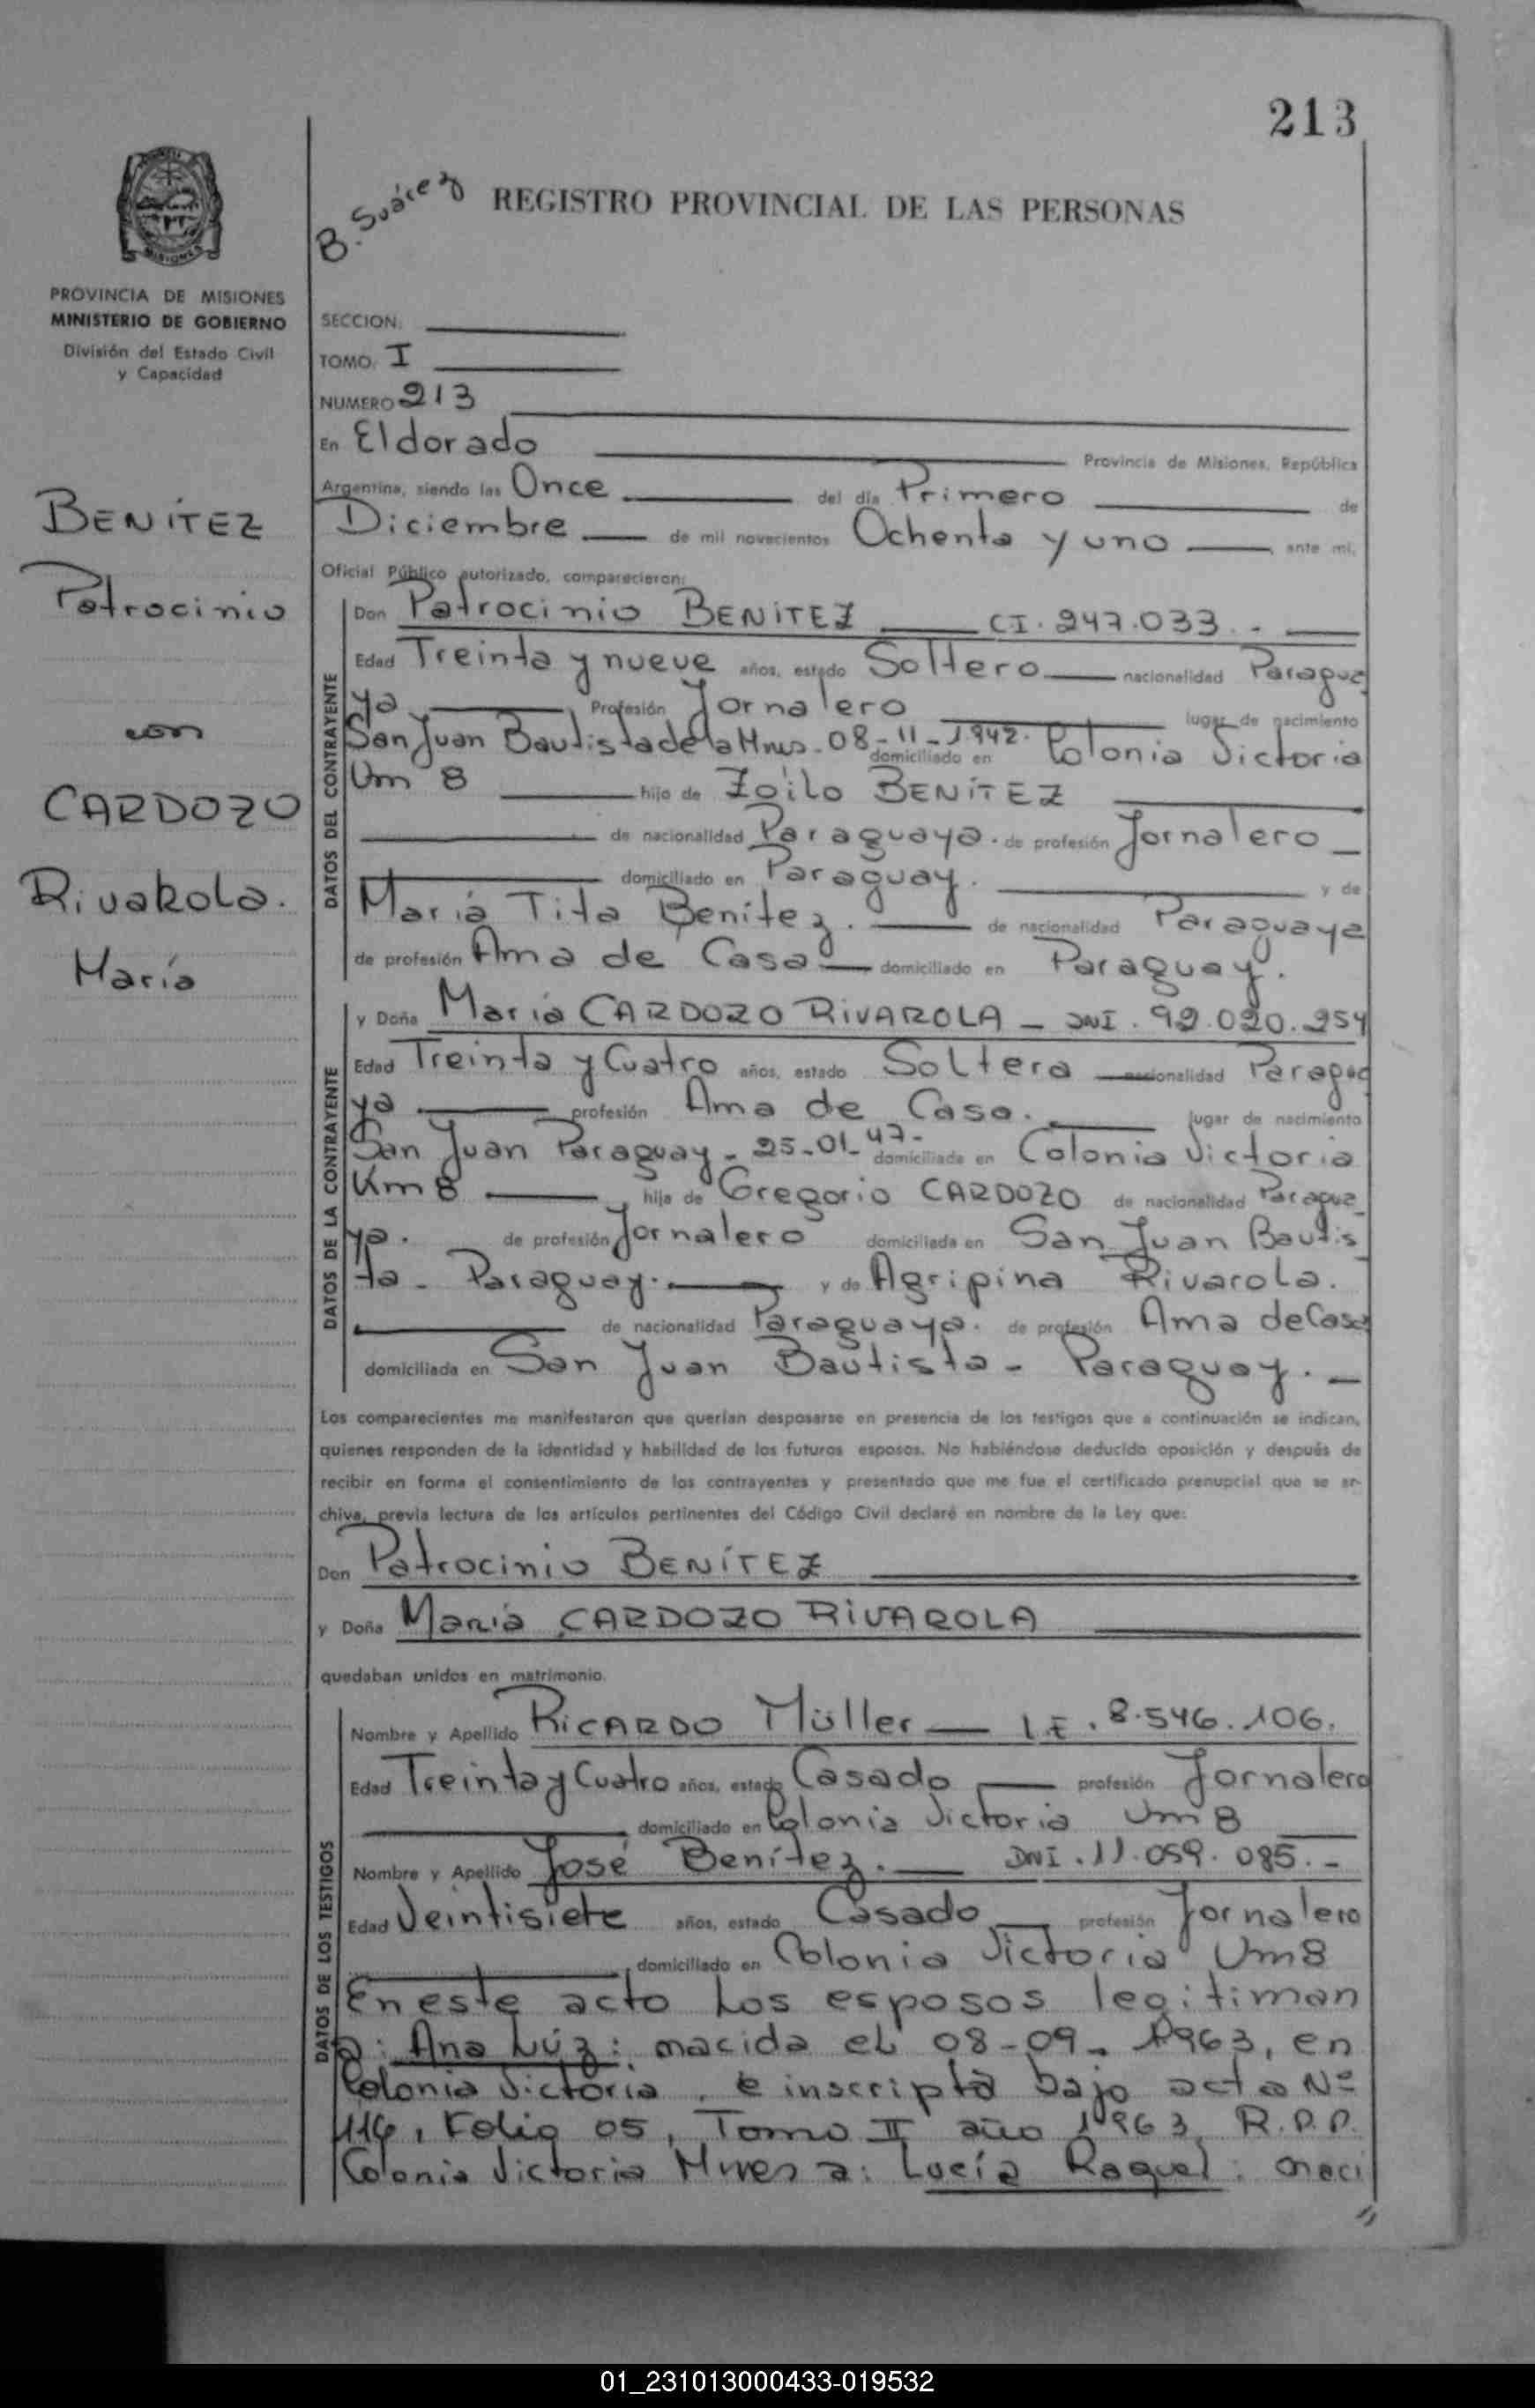 213
B. Suárez
REGISTRO PROVINCIAL DE LAS PERSONAS
PROVINCIA DE MISIONES
MINISTERIO DE GOBIERNO
División del Estado Civil
y Capacidad
BENITEZ
Patrocinio
con
CARDOZO
Rivarola.
María
SECCION:
TOMO: I
NUMERO 213
En Eldorado Provincia de Misiones, República
Argentina, siendo las Once del día Primero de
Diciembre de mil novecientos Ochenta y uno ante mí,
Oficial Público autorizado, comparecieron:
DATOS DEL CONTRAYENTE
Don Patrocinio BENITEZ CI. 247.033.-
Edad Treinta y nueve años, estado Soltero nacionalidad Paragua
ya Profesión Jornalero lugar de nacimiento
San Juan Bautista de la Mnes - 08-11-1942. domiciliado en Colonia Victoria
Km 8 hijo de Zóilo BENÍTEZ
de nacionalidad Paraguaya. de profesión Jornalero
domiciliado en Paraguay. y de
María Tita Benítez. de nacionalidad Paraguaya
de profesión Ama de Casa domiciliado en Paraguay.
DATOS DE LA CONTRAYENTE
y Doña María CARDOZO RIVAROLA - DNI. 92.020.254
Edad Treinta y Cuatro años, estado Soltera nacionalidad Paragua
ya profesión Ama de Casa. lugar de nacimiento
San Juan Paraguay - 25-01-47- domiciliada en Colonia Victoria
Km 8 hija de Gregorio CARDOZO de nacionalidad Paragua
ya. de profesión Jornalero domiciliada en San Juan Bautis
ta - Paraguay. y de Agripina Rivarola.
de nacionalidad Paraguaya. de profesión Ama de Casa
domiciliada en San Juan Bautista - Paraguay. -
Los comparecientes me manifestaron que querían desposarse en presencia de los testigos que a continuación se indican,
quienes responden de la identidad y habilidad de los futuros esposos. No habiéndose deducido oposición y después de
recibir en forma el consentimiento de los contrayentes y presentado que me fue el certificado prenupcial que se ar-
chiva, previa lectura de los artículos pertinentes del Código Civil declaré en nombre de la Ley que:
Don Patrocinio BENÍTEZ
y Doña María CARDOZO RIVAROLA
quedaban unidos en matrimonio.
DATOS DE LOS TESTIGOS
Nombre y Apellido RICARDO Müller - L.E. 8.546.106.
Edad Treinta y Cuatro años, estado Casado profesión Jornalero
domiciliado en Colonia Victoria Km 8
Nombre y Apellido José Benítez. DNI. 11.059.085.-
Edad Veintisiete años, estado Casado profesión Jornalero
domiciliado en Colonia Victoria Km 8
En este acto los esposos legitiman
a: Ana Lúz: nacida el 08-09-1963, en
Colonia Victoria, e inscripta bajo acta Nº
116, Folio 05, Tomo II año 1963, R.P.P.
Colonia Victoria Mnes a: Lucía Raquel: naci
//
01_231013000433-019532